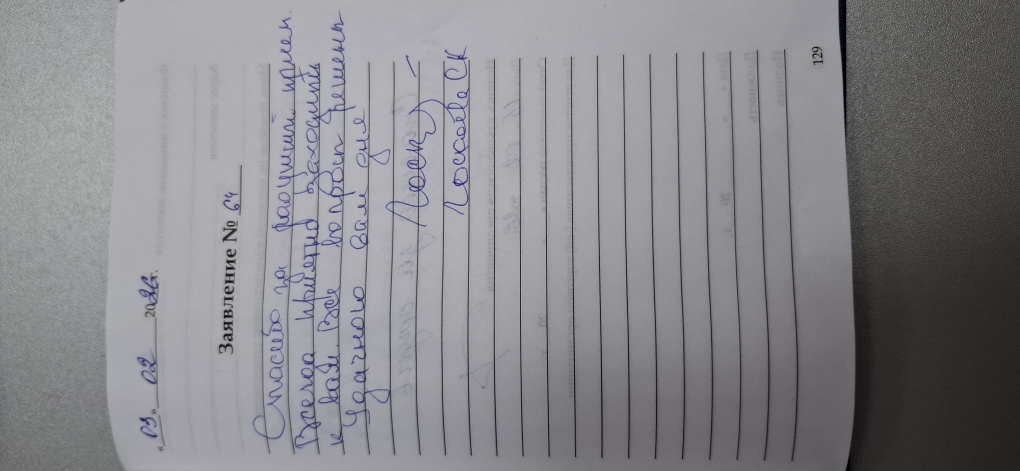 "03" 02 2026г.
Заявление № 64
Спасибо за радушный прием.
Всегда приятно приходить
к вам. Все вопросы решены
Удачного вам дня
129